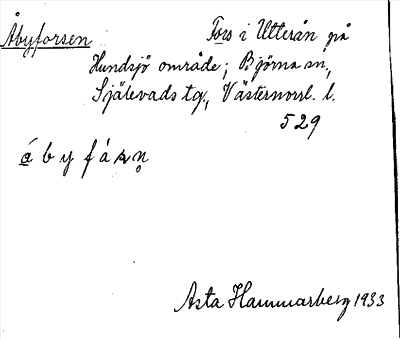 Åbyforsen
Fors i Utterån på
Hundsjö område; Björna sn,
Själevads tg., Västernorrl. l.
529
á b y f á ʀ n̥
Asta Hammarberg 1933